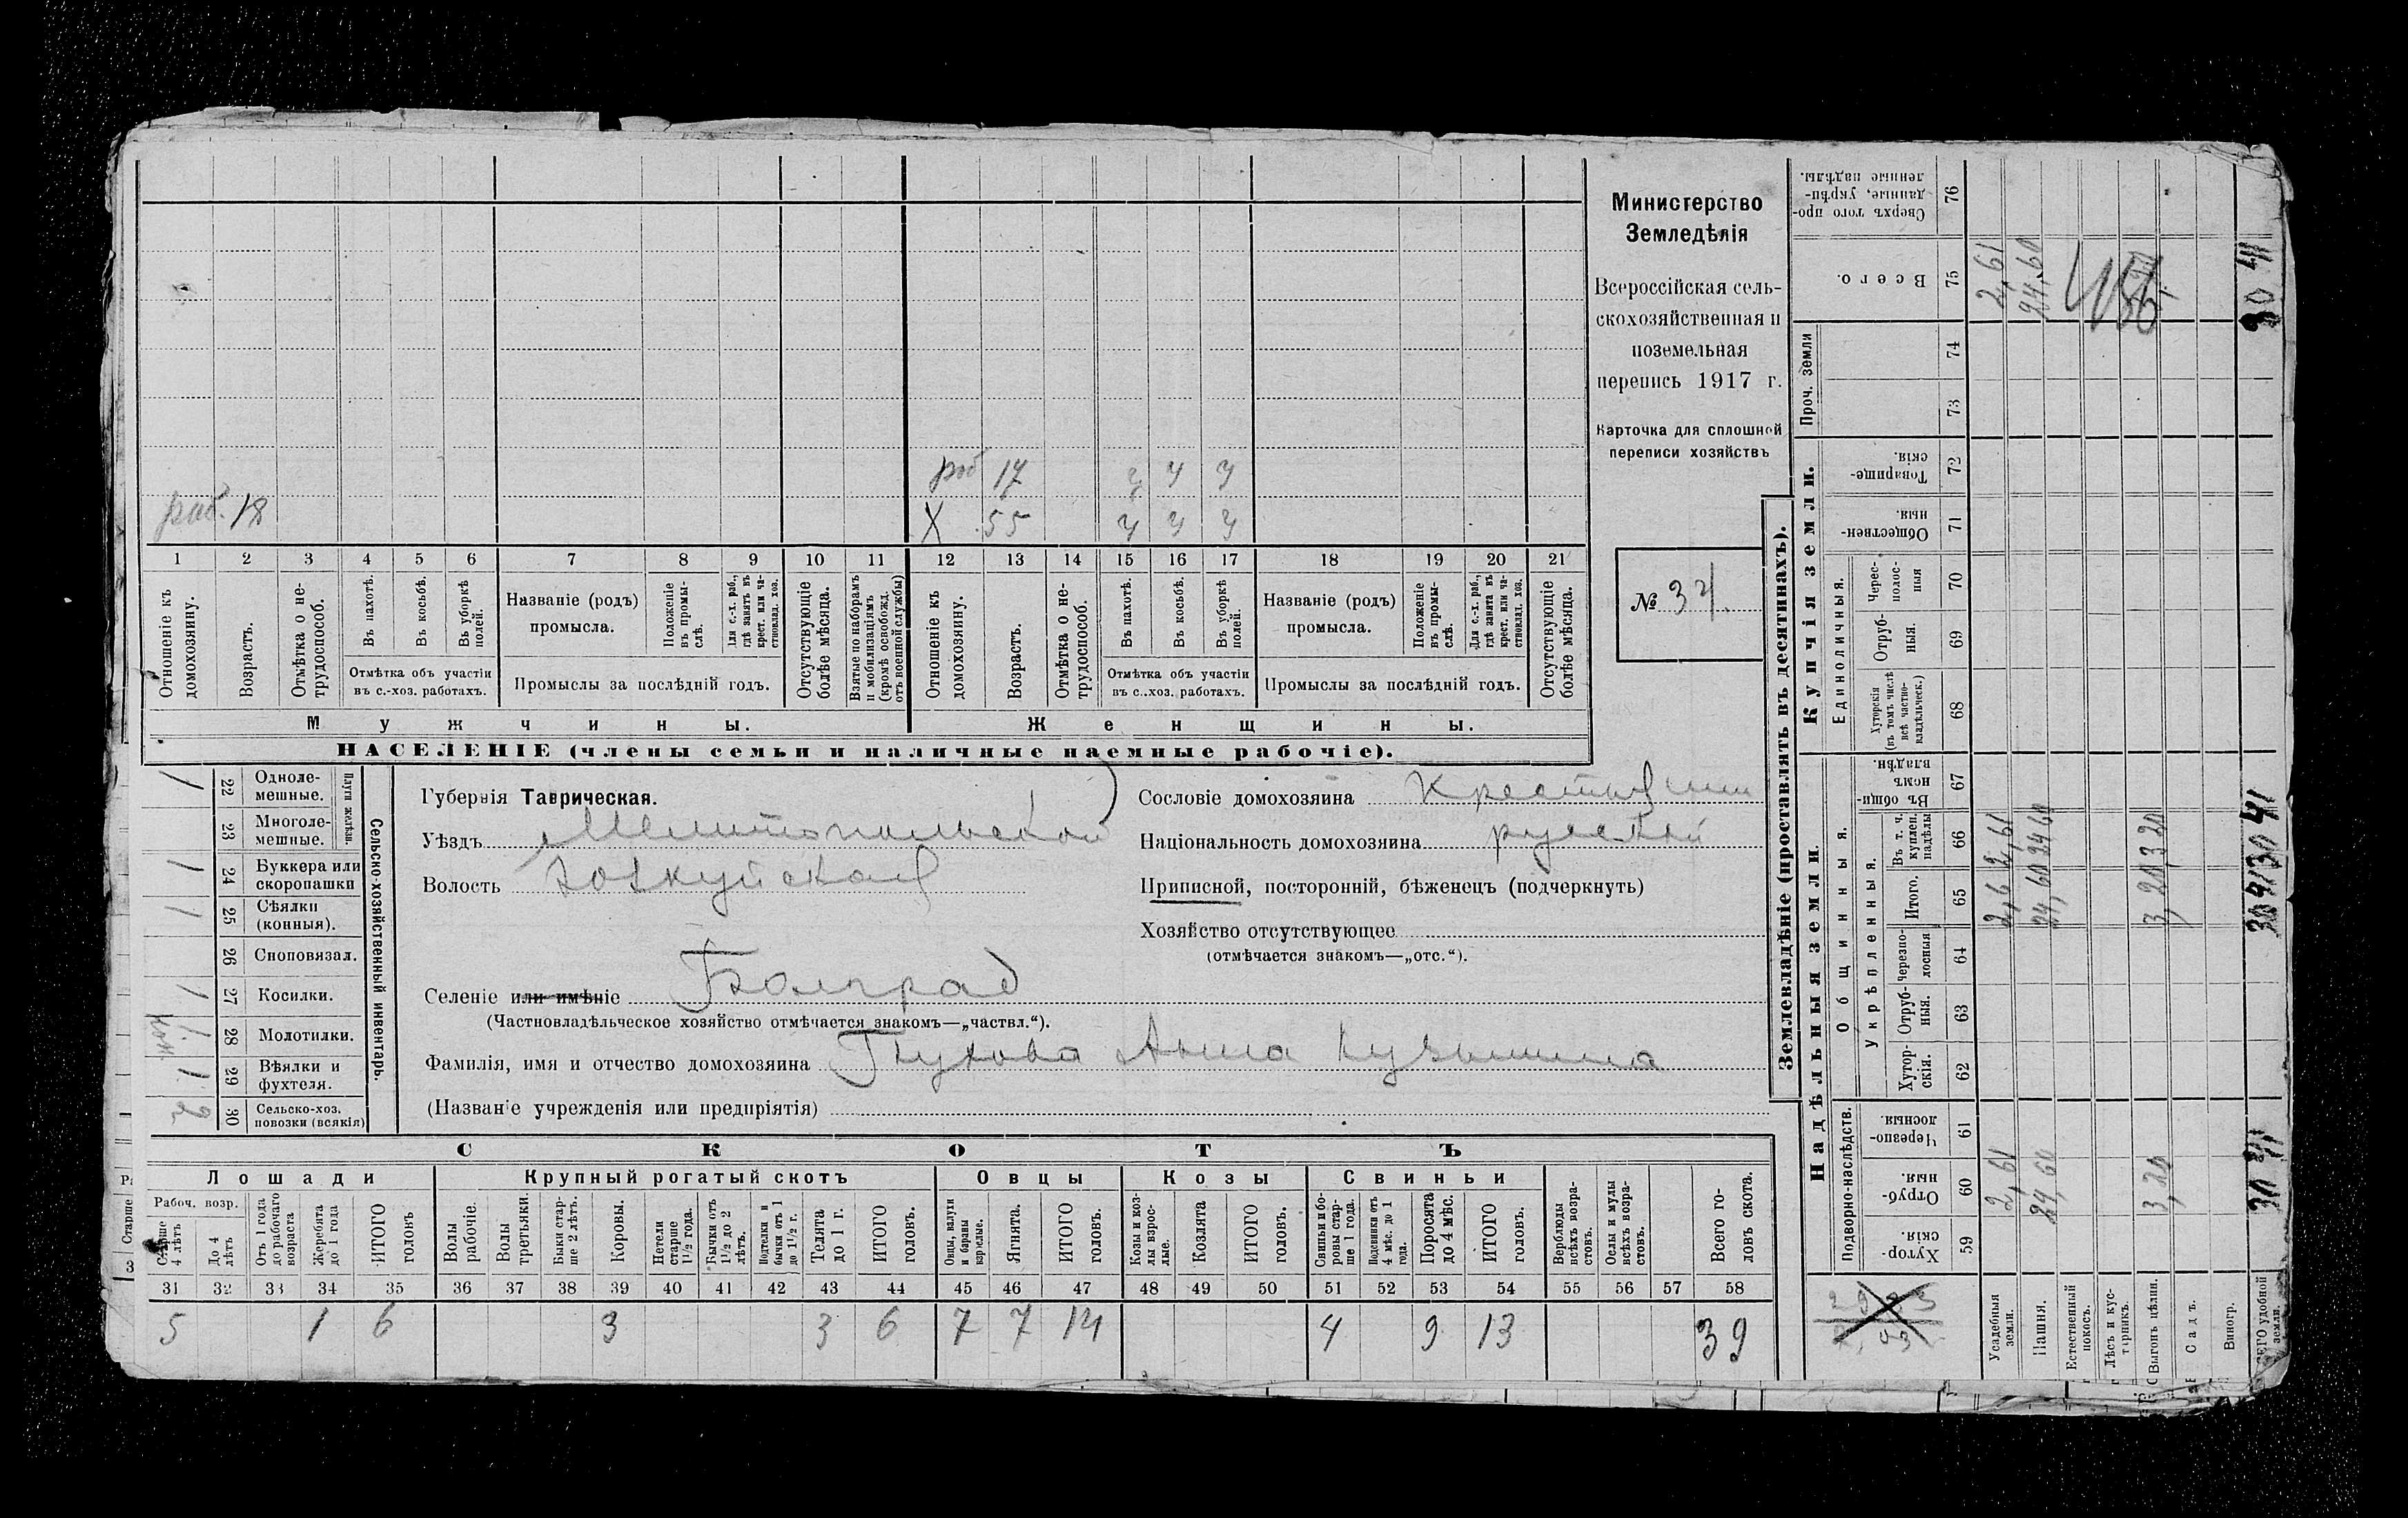 раб 17 ч ч ч
раб. 18 X 55 ч ч ч
1 2 3 4 5 6 7 8 9 10 11 12 13 14 15 16 17 18 19 20 21
Отношеніе къ домохозяину.
Возрастъ.
Отмѣтка о не-трудоспособ.
Въ пахотѣ.
Въ косьбѣ.
Въ уборкѣ полей.
Отмѣтка объ участіи
въ с.-хоз. работахъ.
Названіе (родъ)
промысла.
Положеніе въ промы-слѣ.
Для с.-х. раб., гдѣ занятъ въ крест. или ча-стновлад. хоз.
Промыслы за послѣдній годъ.
Отсутствующіе болѣе мѣсяца.
Взятые по наборамъ и мобилизаціямъ (кромѣ освобожд. отъ военной службы)
Отношеніе къ домохозяину.
Возрастъ.
Отмѣтка о не-трудоспособ.
Въ пахотѣ.
Въ косьбѣ.
Въ уборкѣ полей.
Отмѣтка объ участіи
въ с..хоз. работахъ.
Названіе (родъ)
промысла.
Положеніе въ промы-слѣ.
Для с.-х. раб., гдѣ занята въ крест. или ча-стновлад. хоз.
Промыслы за послѣдній годъ.
Отсутствующіе болѣе мѣсяца.
Мужчины.
Женщины.
НАСЕЛЕНІЕ (члены семьи и наличные наемные рабочіе).
Министерство
Земледѣлія
Всероссійская сель-
скохозяйственная и
поземельная
перепись 1917 г.
Карточка для сплошной
переписи хозяйствъ
№ 34.
Сельско-хозяйственный инвентарь.
Плуги желѣзн.
1 22 Одноле-мешные.
23 Многоле-мешные.
1 24 Буккера или скоропашки
1 25 Сѣялки (конныя).
26 Сноповязал.
1 27 Косилки.
1 кон. 28 Молотилки.
1 29 Вѣялки и фухтеля.
2 30 Сельско-хоз. повозки (всякія)
Губернія Таврическая.
Уѣздъ Мелитопольской
Волость
Селеніе или имѣніе Болград
(Частновладѣльческое хозяйство отмѣчается знакомъ—„частвл.“).
Фамилія, имя и отчество домохозяина Глухова Анна Кузьмина
(Названіе учрежденія или предпріятія)
Сословіе домохозяина
Національность домохозяина русский
Приписной, посторонній, бѣженецъ (подчеркнуть)
Хозяйство отсутствующее
(отмѣчается знакомъ—„отс.“).
СКОТЪ
Лошади Крупный рогатый скотъ Овцы Козы Свиньи
Рабоч. возр.
Старше 4 лѣтъ
До 4 лѣтъ
Отъ 1 года до рабочаго возраста
Жеребята до 1 года
ИТОГО головъ
Волы рабочіе.
Волы третьяки.
Быки стар-ше 2 лѣтъ.
Коровы.
Нетели старше 1½ года.
Бычки отъ 1½ до 2 лѣтъ.
Подтелки и бычки отъ 1 до 1½ г.
Телята до 1 г.
ИТОГО головъ.
Овцы, валухи и бараны взрослые.
Ягнята.
ИТОГО головъ.
Козы и коз-лы взрос-лые.
Козлята
ИТОГО головъ.
Свиньи и бо-ровы стар-ше 1 года.
Подсвинки отъ 4 мѣс. до 1 года.
Поросята до 4 мѣс.
ИТОГО головъ.
Верблюды всѣхъ возра-стовъ.
Ослы и мулы всѣхъ возра-стовъ.
Всего го-ловъ скота.
31 32 33 34 35 36 37 38 39 40 41 42 43 44 45 46 47 48 49 50 51 52 53 54 55 56 57 58
5 1 6 3 3 6 7 7 14 4 9 13 39
Землевладѣніе (проставлять въ десятинахъ).
Надѣльныя земли.
Купчія земли.
Проч. земли
Подворно-наслѣдств.
Общинныя.
Укрѣпленныя.
Единоличныя.
Сверхъ того про-данные, укрѣп-ленные надѣлы. 76
Всего. 75 2,61 24,60 30 41
74
73
Товарище-скія. 72
Обществен-ныя. 71
Черес-полос-ныя 70
Отруб-ныя. 69
Хуторскія (въ томъ числѣ всѣ частно-владѣльческ.) 68
Въ общи-нномъ владѣн. 67
Въ т. ч. куплен. надѣлы 66 2,61 24 60 3 20 30 41
Итого. 65 2,6 24,60 3,20
Черезпо-лосныя 64
Отруб-ныя. 63
Хутор-скія. 62
Черезпо-лосныя 61
Отруб-ныя. 60 2,61 24,60 3,20 30 41
Хутор-скія. 59
Усадебная земля.
Пашня.
Естественный покосъ.
Лѣсъ и кус-тарникъ.
Выгонъ цѣлин.
Садъ.
Виногр.
ВСЕГО удобной земли.